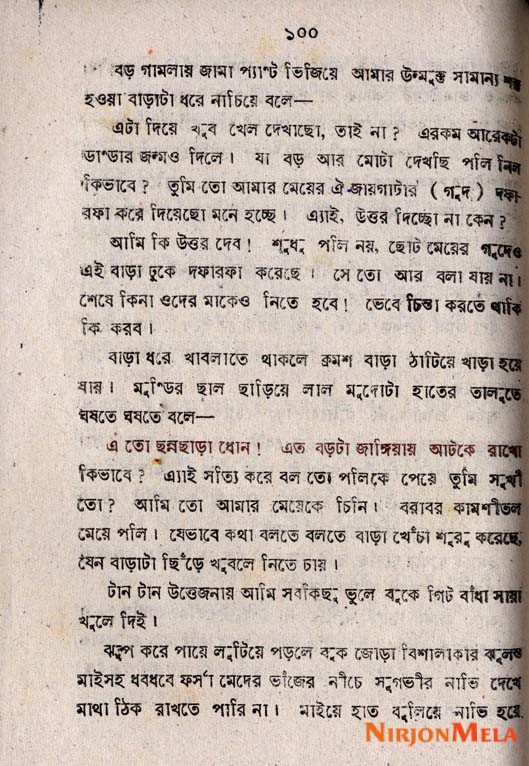 ১০০
বড় গামলায় জামা প্যান্ট ভিজিয়ে আমার উন্মুক্ত সামান্য শক্ত
হওয়া বাড়াটা ধরে নাচিয়ে বলে—
এটা দিয়ে খুব খেল দেখাছো, তাই না ? এরকম আরেকটা
ডান্ডার জন্মও দিলে । যা বড় আর মোটা দেখছি পলি নিল
কিভাবে ? তুমি তো আমার মেয়ের ঐ জায়গাটার ( গুদ ) দফা
রফা করে দিয়েছো মনে হচ্ছে । এ্যাই, উত্তর দিচ্ছো না কেন ?
আমি কি উত্তর দেব ! শুধু পলি নয়, ছোট মেয়ের গুদেও
এই বাড়া ঢুকে দফারফা করেছে । সে তো আর বলা যায় না ।
শেষে কিনা ওদের মাকেও নিতে হবে ! ভেবে চিন্তা করতে থাকি
কি করব ।
বাড়া ধরে খাবলাতে থাকলে ক্রমশ বাড়া ঠাটিয়ে খাড়া হয়ে
যায় । মুন্ডির ছাল ছাড়িয়ে লাল মুদোটা হাতের তালুতে
ঘষতে ঘষতে বলে—
এ তো ছন্নছাড়া ধোন ! এত বড়টা জাঙ্গিয়ায় আটকে রাখো
কিভাবে ? এ্যাই সত্যি করে বল তো পলিকে পেয়ে তুমি সুখী
তো ? আমি তো আমার মেয়েকে চিনি । বরাবর কামশীতল
মেয়ে পলি । যেভাবে কথা বলতে বলতে বাড়া খেঁচা শুরু করেছে,
যেন বাড়াটা ছিঁড়ে খুবলে নিতে চায় ।
টান টান উত্তেজনায় আমি সবকিছু ভুলে বুকে গিট বাঁধা সায়া
খুলে দিই ।
ঝুপ করে পায়ে লুটিয়ে পড়লে বুক জোড়া বিশালাকার ঝুলন্ত
মাইসহ ধবধবে ফর্সা মেদের ভাঁজের নীচে সুগভীর নাভি দেখে
মাথা ঠিক রাখতে পারি না । মাইয়ে হাত বুলিয়ে নাভি হয়ে
NIRJONMELA